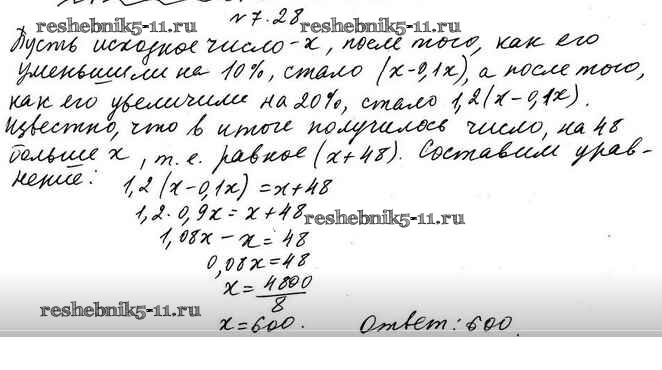 N 7.28
reshebnik5-11.ru reshebnik5-11.ru
Пусть исходное число - x, после того, как его
уменьшили на 10%, стало (x-0,1x), а после того,
как его увеличили на 20%, стало 1,2(x-0,1x).
Известно, что в итоге получилось число, на 48
больше x, т.е. равное (x+48). Составим урав-
нение:
1,2(x-0,1x)=x+48
1,2·0,9x=x+48
reshebnik5-11.ru
1,08x-x=48
0,08x=48
x=4800/8
reshebnik5-11.ru
x=600. Ответ: 600.